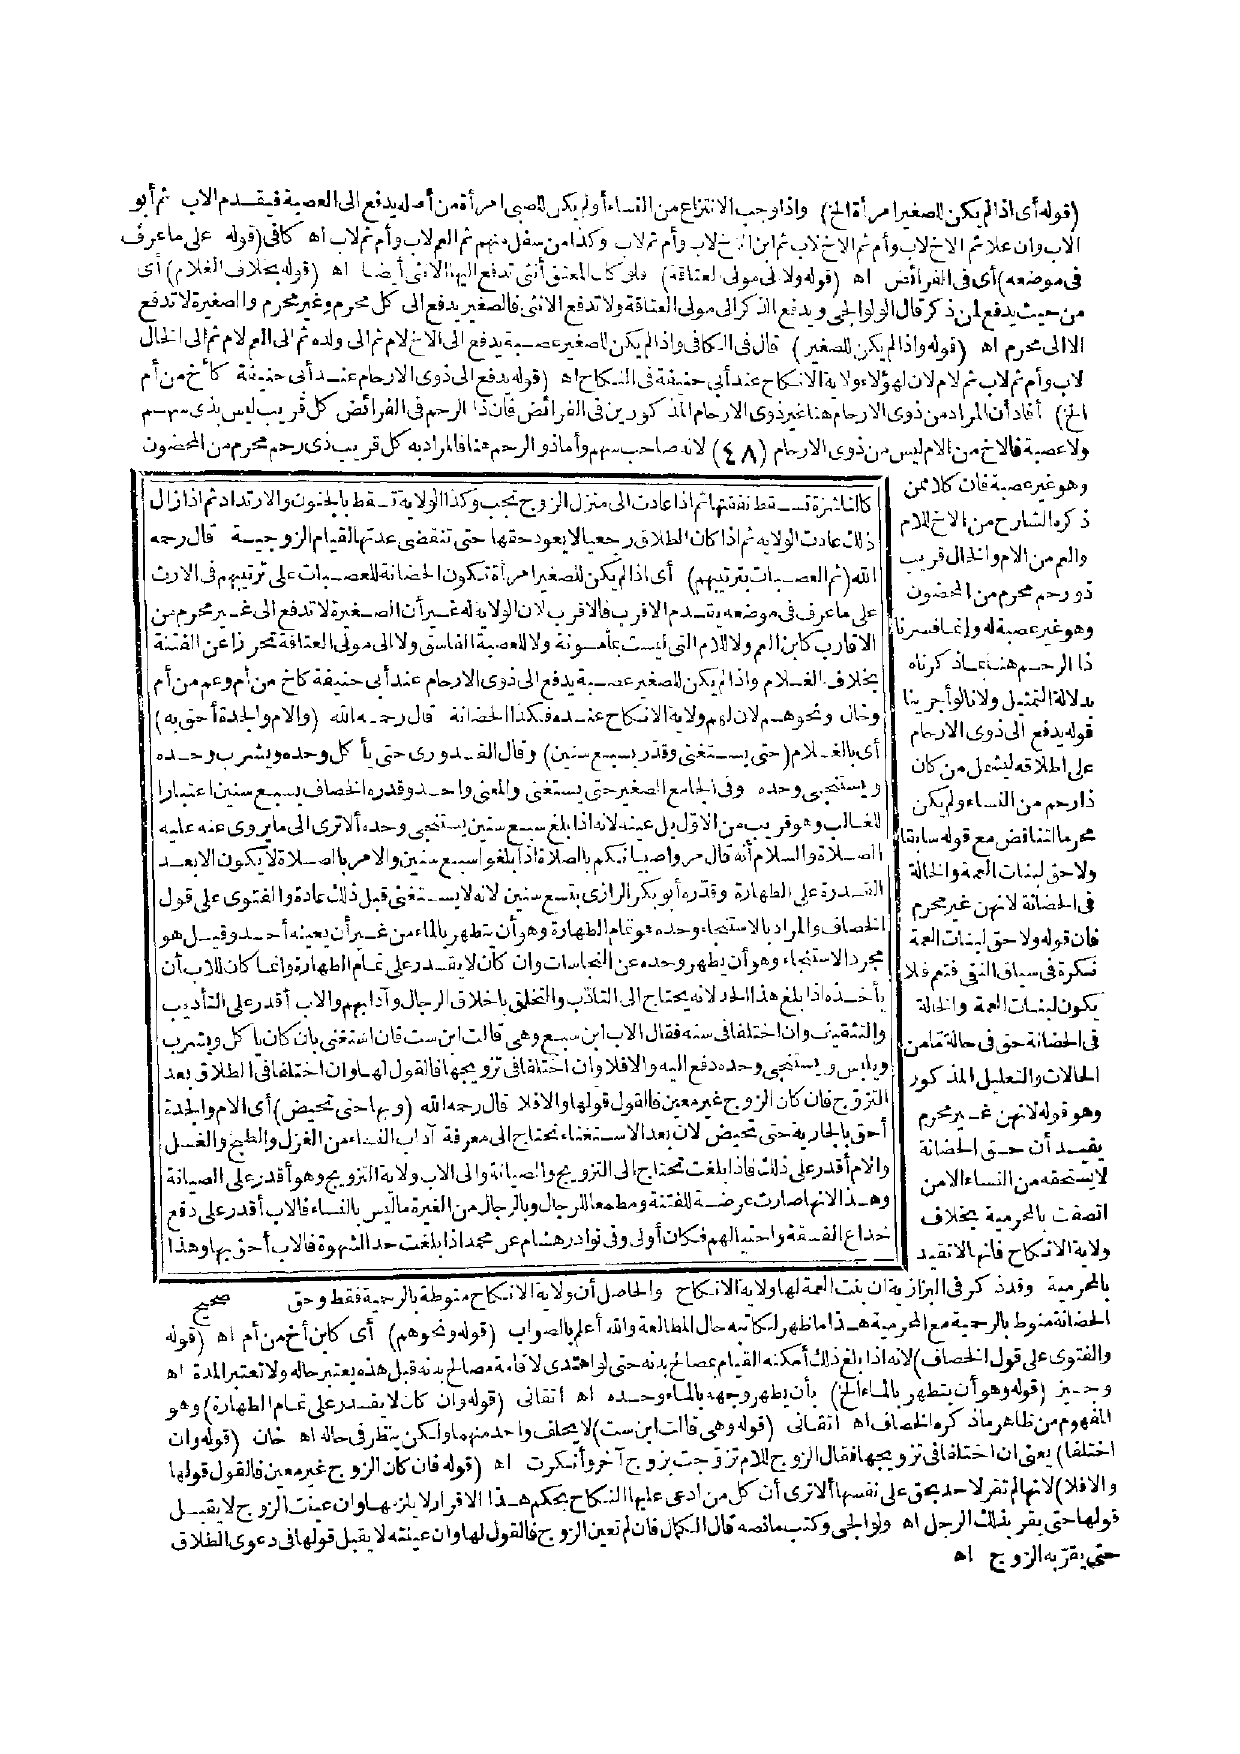 (قوله أى اذالم يكن للصغير امرأة الخ) واذا وجب الانتزاع من النساء أولم يكن للصبى امرأة من أهله يدفع الى العصبة فيقدم الاب ثم أبو
الاب وان علا ثم الاخ لاب وأم ثم الاخ لاب ثم ابن الاخ لاب وأم ثم لاب وكذا من سفل منهم ثم العم لاب وأم ثم لاب اه كافى (قوله على ما عرف
فى موضعه) أى فى الفرائض اه (قوله ولا الى مولى العتاقة) فلو كان المعتق أنثى تدفع اليها الانثى أيضا اه (قوله بخلاف الغلام) أى
من حيث يدفع لمن ذكر قال الولوالجى ويدفع الذكر الى مولى العتاقة ولا تدفع الانثى فالصغير يدفع الى كل محرم وغير محرم والصغيرة لا تدفع
الا الى محرم اه (قوله واذالم يكن للصغير) قال فى الكافى واذالم يكن للصغير عصبة يدفع الى الاخ لام ثم الى ولده ثم الى العم لام ثم الى الخال
لاب وأم ثم لاب ثم لام لان لهؤلاء ولاية الانكاح عند أبى حنيفة فى النكاح اه (قوله يدفع الى ذوى الارحام عند أبى حنيفة كأخ من أم
الخ) أفاد أن المراد من ذوى الارحام هنا غير ذوى الارحام المذكورين فى الفرائض فان ذا الرحم فى الفرائض كل قريب ليس بذى سهم
ولا عصبة فالاخ من الام ليس من ذوى الارحام (٤٨) لانه صاحب سهم وأما ذو الرحم هنا فالمراد به كل قريب ذى رحم محرم من المحضون
وهو غير عصبة فان كلا ممن
ذكره الشارح من الاخ للام
والعم من الام والخال قريب
ذو رحم محرم من المحضون
وهو غير عصبة له وانما فسرنا
ذا الرحم هنا بما ذكرناه
بدلالة التمثيل ولانا لو أجرينا
قوله يدفع الى ذوى الارحام
على اطلاقه ليشمل من كان
ذا رحم من النساء ولم يكن
محرما لتناقض مع قوله سابقا
ولا حق لبنات العمة والخالة
فى الحضانة لانهن غير محرم
فان قوله ولا حق لبنات العمة
نكرة فى سياق النفى فتعم فلا
يكون لبنات العمة والخالة
فى الحضانة حق فى حالة ما من
الحالات والتعليل المذكور
وهو قوله لانهن غير محرم
يفيد أن حق الحضانة
لا يستحقه من النساء الا من
اتصفت بالمحرمية بخلاف
ولاية الانكاح فانها لا تتقيد
كالناشزة تسقط نفقتها ثم اذا عادت الى منزل الزوج تجب وكذا الولاية تسقط بالجنون والارتداد ثم اذا زال
ذلك عادت الولاية ثم اذا كان الطلاق رجعيا لا يعود حقها حتى تنقضى عدتها لقيام الزوجية قال رحمه
الله (ثم العصبات بترتيبهم) أى اذالم يكن للصغير امرأة تكون الحضانة للعصبات على ترتيبهم فى الارث
على ما عرف فى موضعه يقدم الاقرب فالاقرب لان الولاية له غير أن الصغيرة لا تدفع الى غير محرم من
الاقارب كابن العم ولا للام التى ليست بمأمونة ولا للعصبة الفاسق ولا الى مولى العتاقة تحرزا عن الفتنة
بخلاف الغلام واذالم يكن للصغير عصبة يدفع الى ذوى الارحام عند أبى حنيفة كاخ من أم وعم من أم
وخال ونحوهم لان لهم ولاية الانكاح عنده فكذا الحضانة قال رحمه الله (والام والجدة أحق به)
أى بالغلام (حتى يستغنى وقدر بسبع سنين) وقال القدورى حتى يأكل وحده ويشرب وحده
ويستنجى وحده وفى الجامع الصغير حتى يستغنى والمعنى واحد وقدره الخصاف بسبع سنين اعتبارا
للغالب وهو قريب من الاول بل عينه لانه اذا بلغ سبع سنين يستنجى وحده ألا ترى الى ما يروى عنه عليه
الصلاة والسلام أنه قال مروا صبيانكم بالصلاة اذا بلغوا سبع سنين والامر بالصلاة لا يكون الا بعد
القدرة على الطهارة وقدره أبو بكر الرازى بتسع سنين لانه لا يستغنى قبل ذلك عادة والفتوى على قول
الخصاف والمراد بالاستنجاء وحده هو تمام الطهارة وهو أن يتطهر بالماء من غير أن يعينه أحد وقيل هو
مجرد الاستنجاء وهو أن يطهر وحده عن النجاسات وان كان لا يقدر على تمام الطهارة وانما كان للاب أن
يأخذه اذا بلغ هذا الحد لانه يحتاج الى التأدب والتخلق باخلاق الرجال وآدابهم والاب أقدر على التأديب
والتثقيف وان اختلفا فى سنه فقال الاب ابن سبع وهى قالت ابن ست فان استغنى بان كان يأكل ويشرب
ويلبس ويستنجى وحده دفع اليه والا فلا وان اختلفا فى تزويجها فالقول لها وان اختلفا فى الطلاق بعد
التزوج فان كان الزوج غير معين فالقول قولها والا فلا قال رحمه الله (وبها حتى تحيض) أى الام والجدة
أحق بالجارية حتى تحيض لان بعد الاستغناء تحتاج الى معرفة آداب النساء من الغزل والطبخ والغسل
والام أقدر على ذلك فاذا بلغت تحتاج الى التزويج والصيانة والى الاب ولاية التزويج وهو أقدر على الصيانة
وهذا لانها صارت عرضة للفتنة ومطمعا للرجال وبالرجال من الغيرة ما ليس بالنساء فالاب أقدر على دفع
خداع الفسقة واحتيالهم فكان أولى وفى نوادر هشام عن محمد اذا بلغت حد الشهوة فالاب أحق بها وهذا
صحيح
بالمحرمية وقد ذكر فى البزازية ان بنت العمة لها ولاية الانكاح والحاصل أن ولاية الانكاح منوطة بالرحمية فقط وحق
الحضانة منوط بالرحمية مع المحرمية هذا ما ظهر لكاتبه حال المطالعة والله أعلم بالصواب (قوله ونحوهم) أى كابن أخ من أم اه (قوله
والفتوى على قول الخصاف) لانه اذا بلغ ذلك أمكنه القيام بمصالح بدنه حتى لو اهتدى لاقامة مصالح بدنه قبل هذه يعتبر حاله ولا تعتبر المدة اه
وجيز (قوله وهو أن يتطهر بالماء الخ) بأن يطهر وجهه بالماء وحده اه اتقانى (قوله وان كان لا يقدر على تمام الطهارة) وهو
المفهوم من ظاهر ما ذكره الخصاف اه اتقانى (قوله وهى قالت ابن ست) لا يحلف واحد منهما ولكن ينظر فى حاله اه خان (قوله وان
اختلفا) يعنى ان اختلفا فى تزويجها فقال الزوج للام تزوجت بزوج آخر وأنكرت اه (قوله فان كان الزوج غير معين فالقول قولها
والا فلا) لانها لم تقر لاحد بحق على نفسها ألا ترى أن كل من ادعى عليها النكاح بحكم هذا الاقرار لا يلزمها وان عينت الزوج لا يقبل
قولها حتى يقر بذلك الرجل اه ولوالجى وكتب ما نصه قال الكمال فان لم تعين الزوج فالقول لها وان عينته لا يقبل قولها فى دعوى الطلاق
حتى يقر به الزوج اه